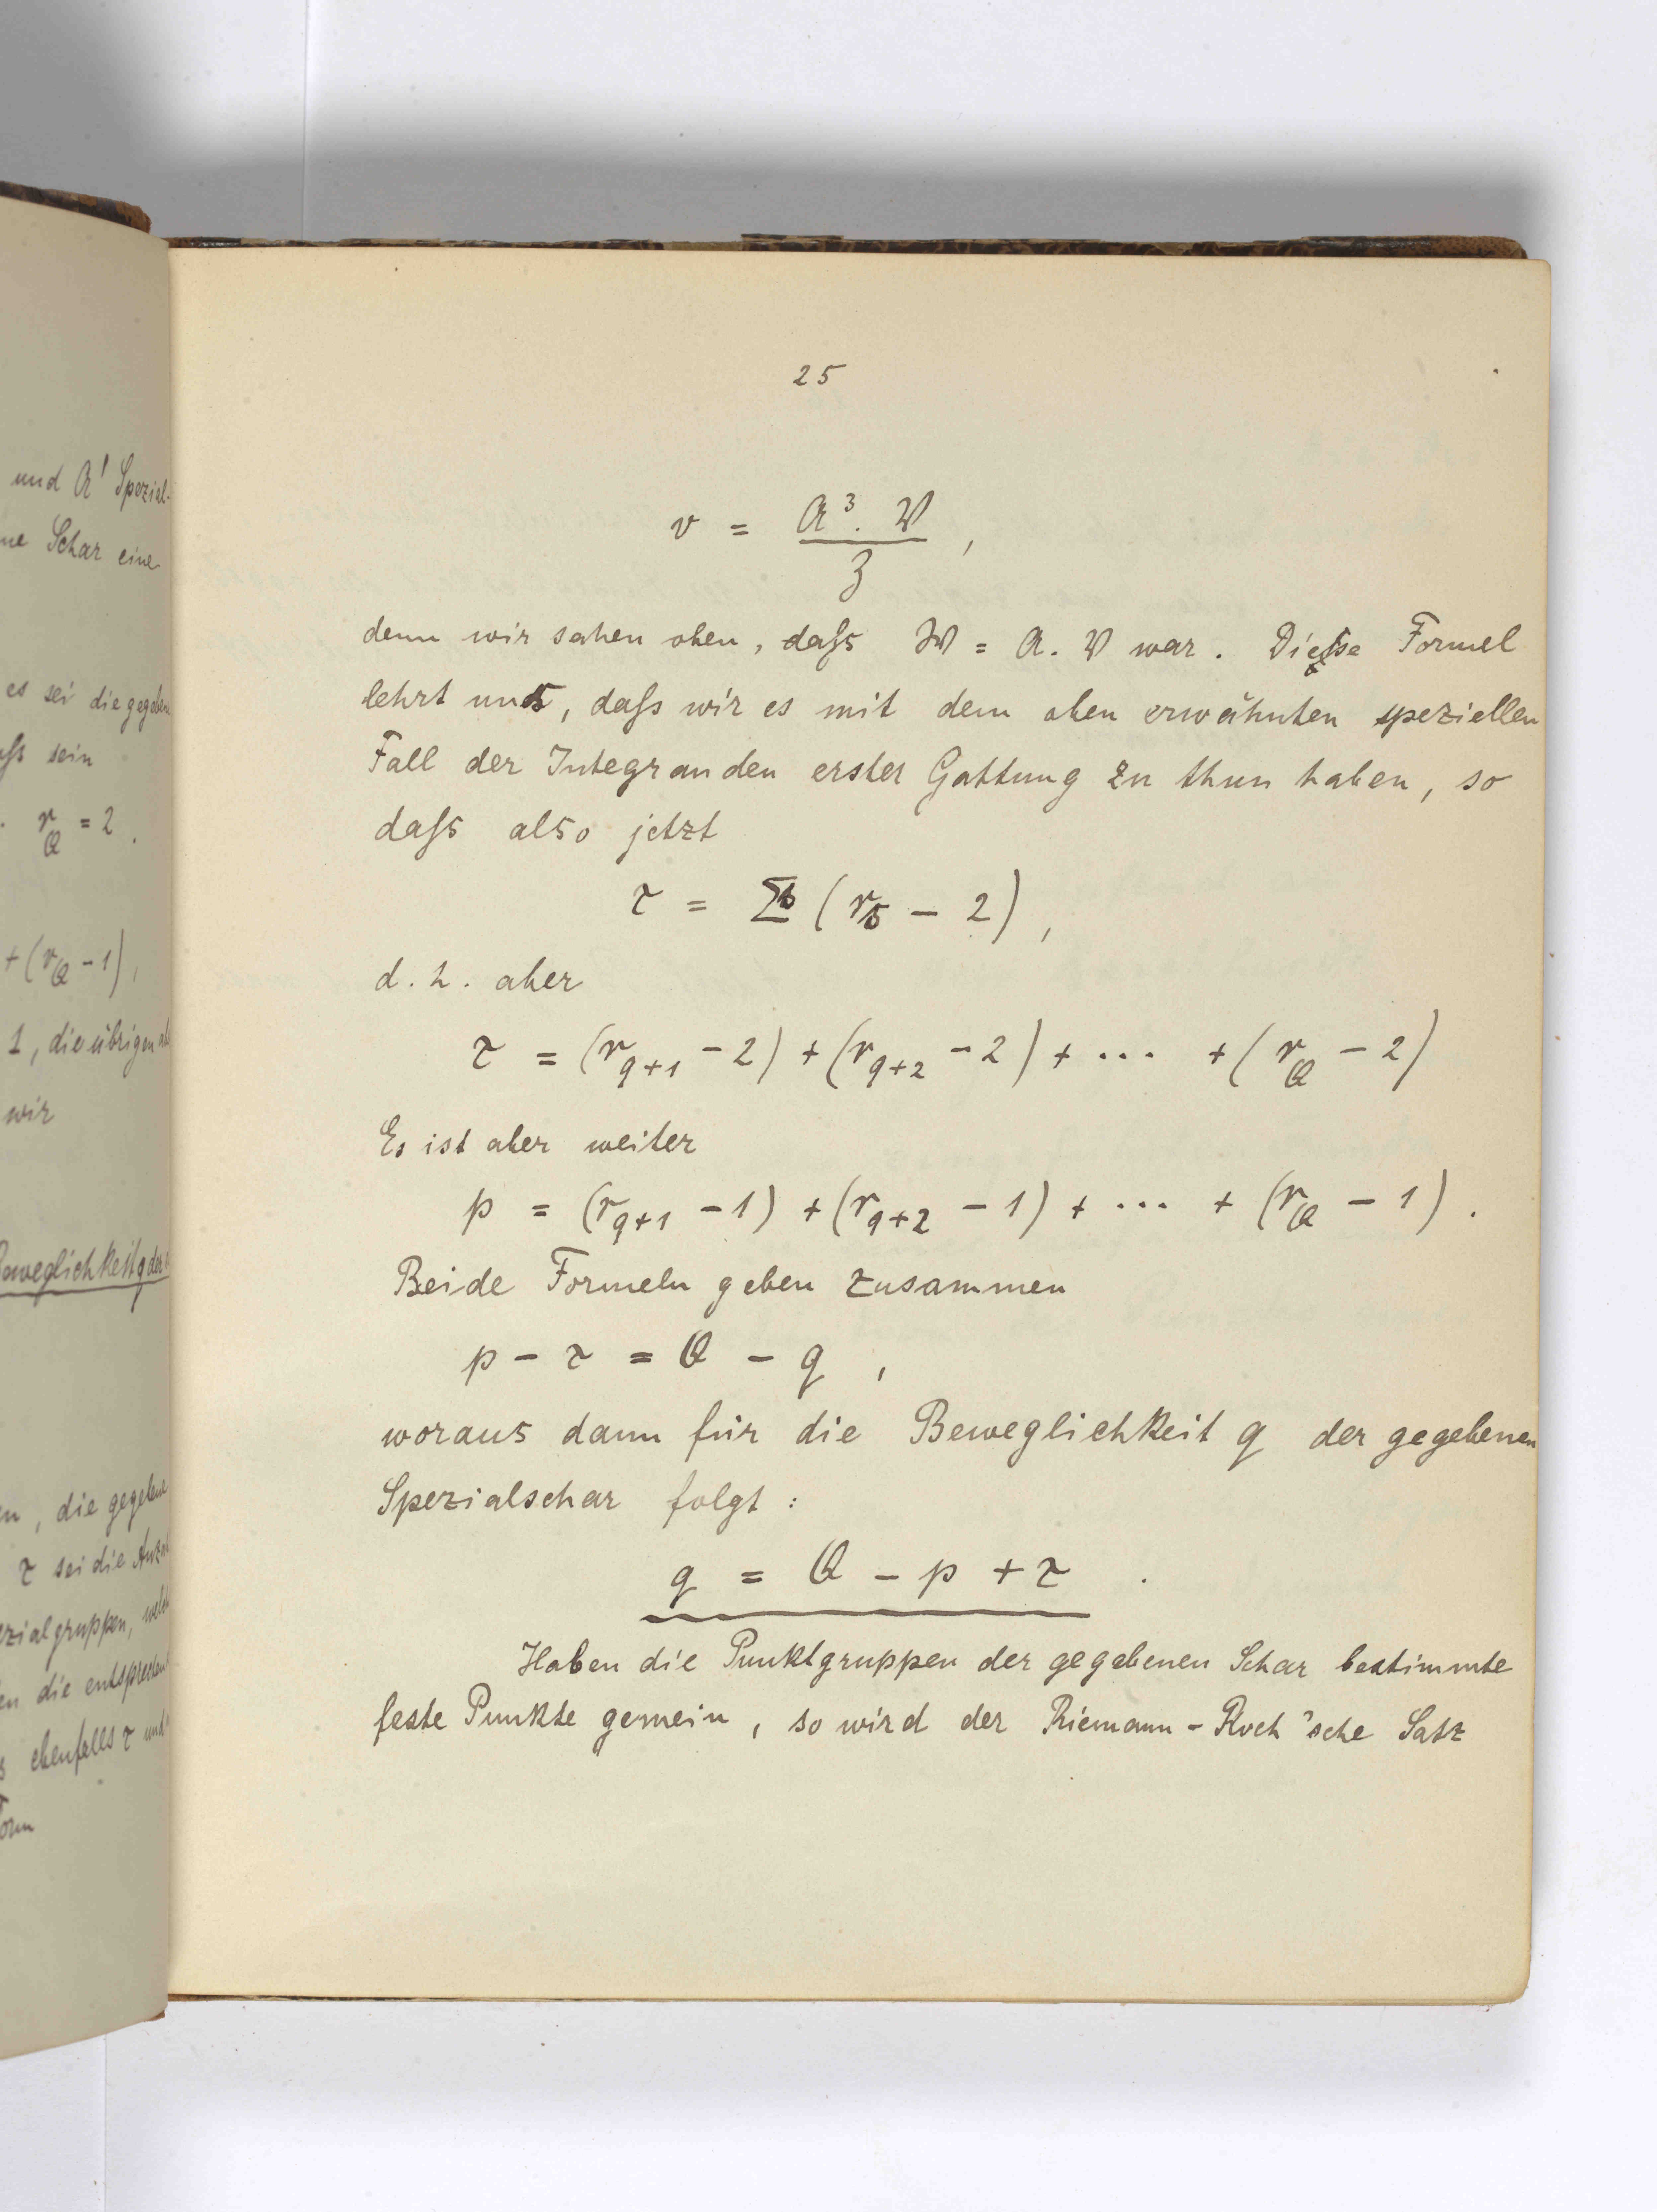 und A' Spezial-
ne Schar eine
es sei die gegeben
sein
r_Q = 2.
+ (r_Q - 1),
1, die übrigen
wir
Beweglichkeit q der
, die gegebene
τ sei die
gruppen,
die
ebenfalls τ und
25
v = \frac{A^3 . W}{Z} ,
denn wir sahen oben, daſs W = A. V war. Diese Formel
lehrt uns, daſs wir es mit dem oben erwähnten speziellen
Fall der Integranden erster Gattung zu thun haben, so
daſs also jetzt
τ = Σ (r_s - 2) ,
d. h. aber
τ = (r_{q+1} - 2) + (r_{q+2} - 2) + ... + (r_Q - 2)
Es ist aber weiter
p = (r_{q+1} - 1) + (r_{q+2} - 1) + ... + (r_Q - 1) .
Beide Formeln geben zusammen
p - τ = Q - q ,
woraus dann für die Beweglichkeit q der gegebenen
Spezialschar folgt :
q = Q - p + τ .
Haben die Punktgruppen der gegebenen Schar bestimmte
feste Punkte gemein, so wird der Riemann-Roch'sche Satz